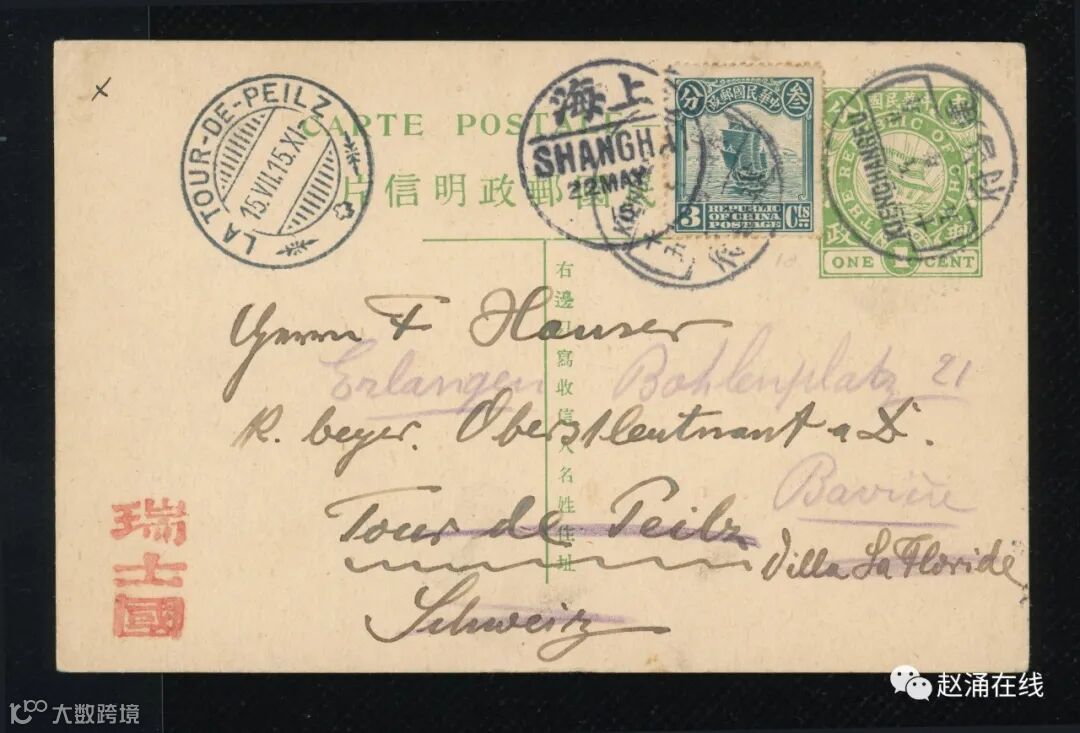 LA TOUR-DE-PEILZ
15.VII.15.XI
CARTE POSTALE
片信明政郵國民
海上
SHANGHA
22 MAY
分 政郵國民華中 叁
3 REPUBLIC OF CHINA POSTAGE Cts
分 國民華中
THE REPUBLIC OF CHINA
政 郵
ONE 1 CENT
右邊 寫收信人名姓住址
Herrn F Hauser
Erlangen Bohlenplatz 21
K. beyer. Oberstleutnant a D.
Bavière
Tour de Peilz
Villa La Floride
Schweiz
瑞士國
大数跨境
赵涌在线